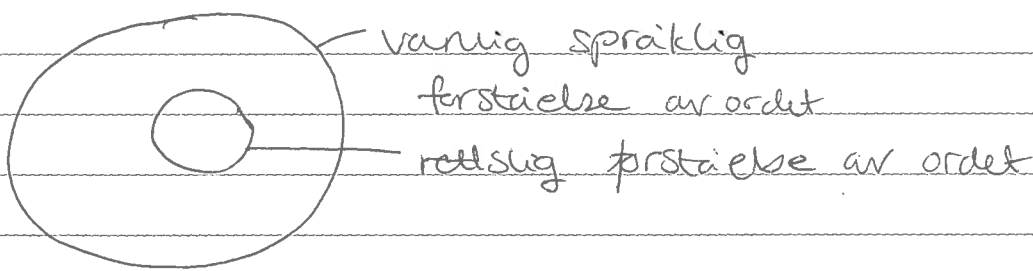 vanlig språklig
forståelse av ordet
rettslig forståelse av ordet